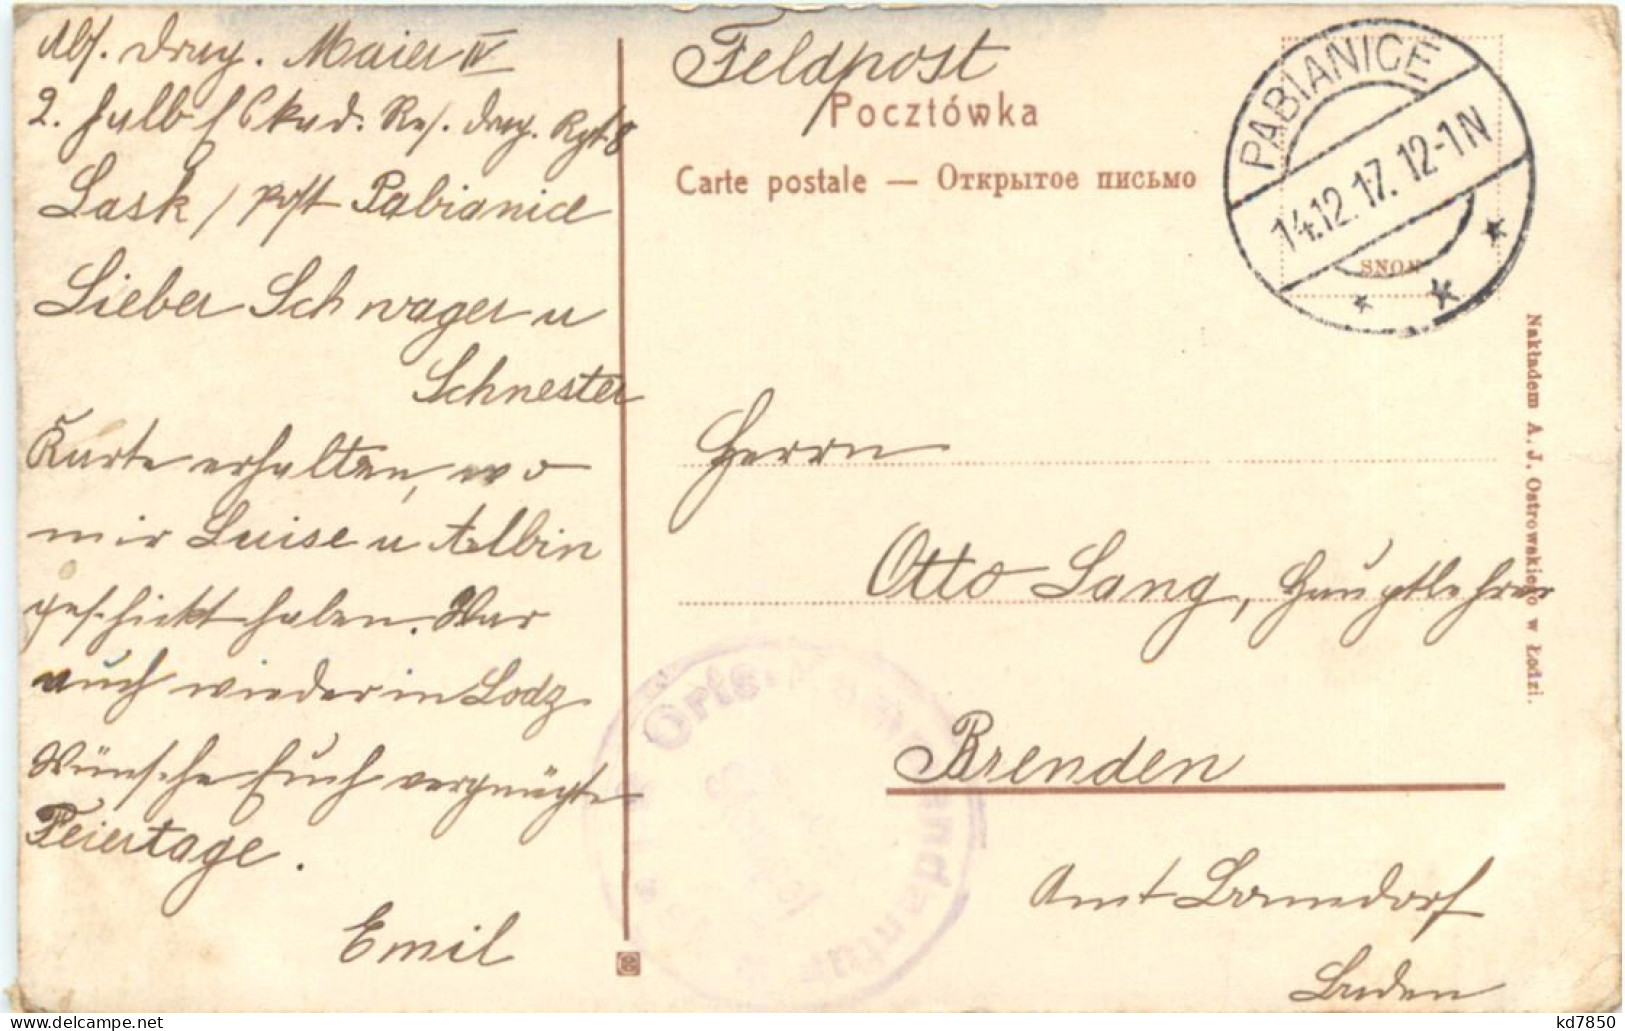 Abs. Drag. Maier IV
2. Halb Eskad. Res. Drag. Rgt. 8
Lask / Post Pabianice
Lieber Schwager u
Schwester
Karte erhalten, wo
mir Luise u Albin
geschickt haben. War
auch wieder in Lodz
Wünsche Euch vergnügte
Feiertage.
Emil
Feldpost
Pocztówka
Carte postale — Открытое письмо
PABIANICE
14.12.17. 12-1N
SNON
Herrn
Otto Lang, Hauptlehrer
Brenden
Amt Bonndorf
Baden
Nakładem A. J. Ostrowskiego w Łodzi.
Orts-Kommandantur
kd7850